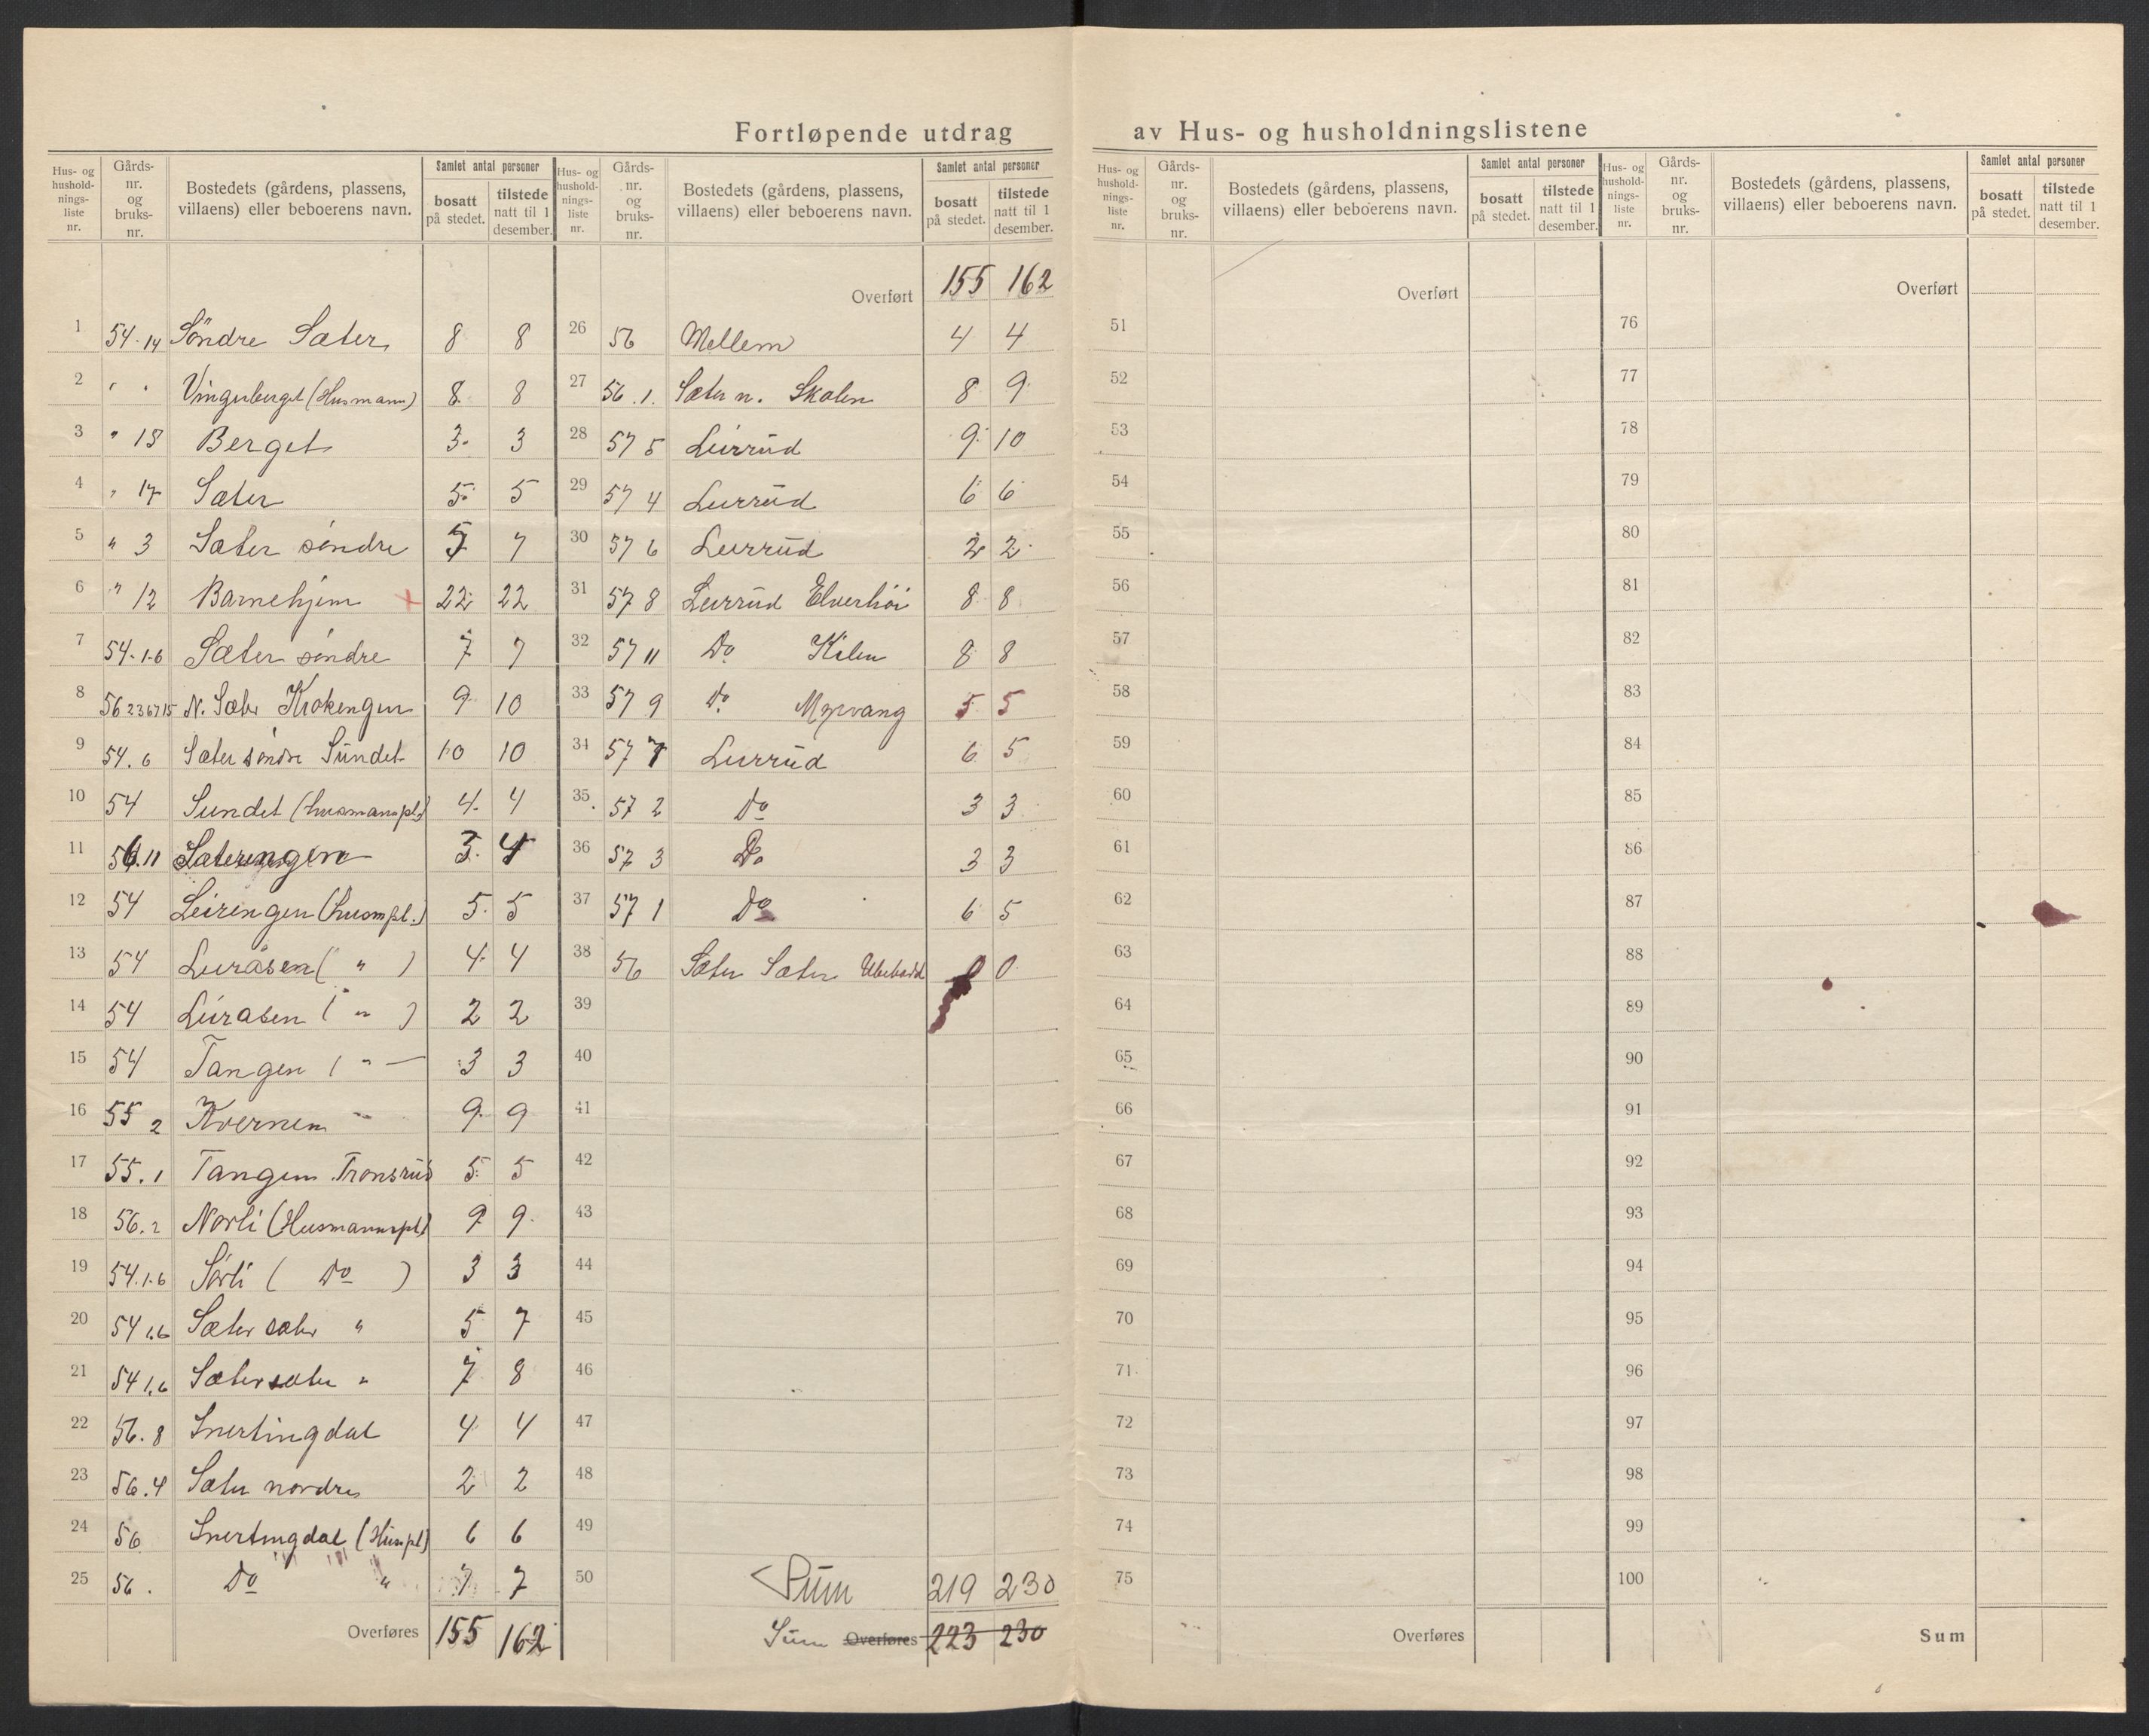 Fortløpende utdrag av Hus- og husholdningslistene
Hus- og hushold-nings-liste nr. | Gårds-nr. og bruks-nr. | Bostedets (gårdens, plassens, villaens) eller beboerens navn. | Samlet antal personer | bosatt på stedet. | tilstede natt til 1 desember.
1 54.14 Söndre Sæter 8 8
2 " " (Husmann) 8 8
3 " 18 Berget 3 3
4 " 17 Sæter 5 5
5 " 3 Sæter söndre 7
6 " 12 Barnehjem 22 22
7 54.1.6 Sæter söndre 7 7
8 56 2 3 6 7 15 N. Sæter Krokengen 9 10
9 54.6 Sæter söndre Sundet 10 10
10 54 Sundet (husmanspl.) 4 4
11 56.11 Sæterengen 3 4
12 54 Leirengen (husmpl.) 5 5
13 54 Luråsen ( " ) 4 4
14 54 Luråsen ( " ) 2 2
15 54 Tangen ( " — 3 3
16 55 2 Kvernen " 9 9
17 55.1 Tangen Tronsrud 5 5
18 56.2 Norli (Husmannspl.) 9 9
19 54.1.6 Sörli ( Do ) 3 3
20 54 1.6 Sæter sæter " 5 7
21 54 1.6 Sæter sæter " 7 8
22 56.8 Snertingdal 4 4
23 56.4 Sæter nordre 2 2
24 56 Snertingdal (Husmpl.) 6 6
25 56. Do " 7 7
Overføres 155 162
Hus- og hushold-nings-liste nr. | Gårds-nr. og bruks-nr. | Bostedets (gårdens, plassens, villaens) eller beboerens navn. | Samlet antal personer | bosatt på stedet. | tilstede natt til 1 desember.
Overført 155 162
26 56 Mellem 4 4
27 56.1. Sæter n. Skolen 8 9
28 57 5 Leirrud 9 10
29 57 4 Leirrud 6 6
30 57 6 Leirrud 2 2
31 57 8 Leirrud Elverhöi 8 8
32 57 11 Do Kilen 8 8
33 57 9 Do Myrvang 5 5
34 57 7 Leirrud 6 5
35 57 2 Do 3 3
36 57 3 Do 3 3
37 57 1 Do 6 5
38 56 Sæter Sæter Ubebodd 0 0
39
40
41
42
43
44
45
46
47
48
49
50 Sum 219 230
Sum Overføres 223 230
Hus- og hushold-nings-liste nr. | Gårds-nr. og bruks-nr. | Bostedets (gårdens, plassens, villaens) eller beboerens navn. | Samlet antal personer | bosatt på stedet. | tilstede natt til 1 desember.
Overført
51
52
53
54
55
56
57
58
59
60
61
62
63
64
65
66
67
68
69
70
71
72
73
74
75
Overføres
Hus- og hushold-nings-liste nr. | Gårds-nr. og bruks-nr. | Bostedets (gårdens, plassens, villaens) eller beboerens navn. | Samlet antal personer | bosatt på stedet. | tilstede natt til 1 desember.
Overført
76
77
78
79
80
81
82
83
84
85
86
87
88
89
90
91
92
93
94
95
96
97
98
99
100
Sum